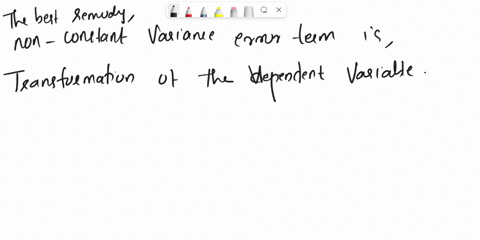 The best remedy,
non-constant Variance error term is,
Transformation of the dependent Variable.